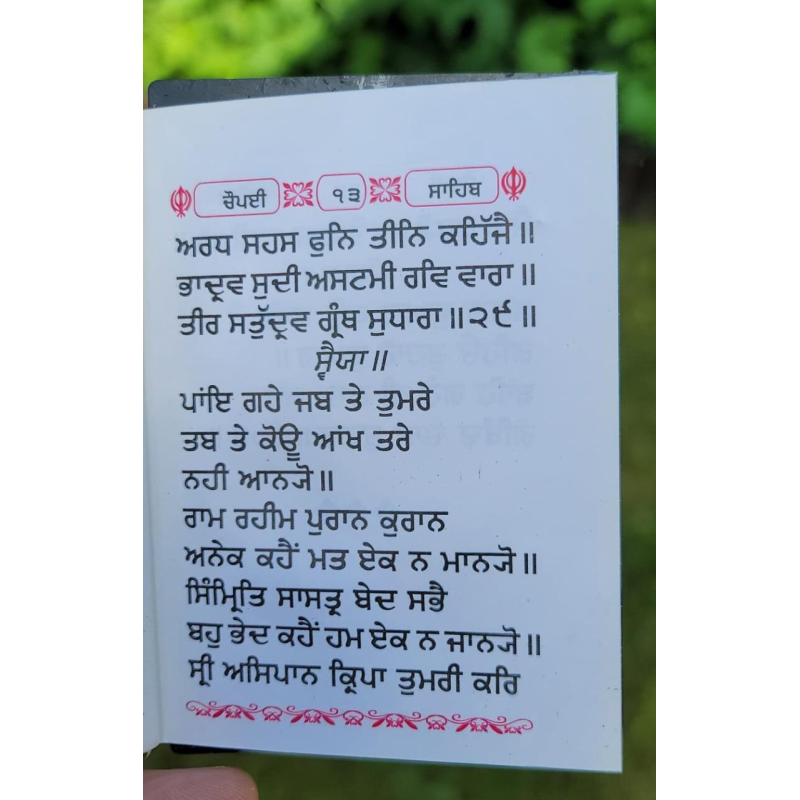 ਚੌਪਈ ੧੩ ਸਾਹਿਬ
ਅਰਧ ਸਹਸ ਫੁਨਿ ਤੀਨਿ ਕਹਿੱਜੈ॥
ਭਾਦ੍ਰਵ ਸੁਦੀ ਅਸਟਮੀ ਰਵਿ ਵਾਰਾ॥
ਤੀਰ ਸਤੁੱਦ੍ਰਵ ਗ੍ਰੰਥ ਸੁਧਾਰਾ॥੨੯॥
ਸ੍ਵੈਯਾ॥
ਪਾਂਇ ਗਹੇ ਜਬ ਤੇ ਤੁਮਰੇ
ਤਬ ਤੇ ਕੋਊ ਆਂਖ ਤਰੇ
ਨਹੀ ਆਨਯੋ॥
ਰਾਮ ਰਹੀਮ ਪੁਰਾਨ ਕੁਰਾਨ
ਅਨੇਕ ਕਹੈਂ ਮਤ ਏਕ ਨ ਮਾਨਯੋ॥
ਸਿੰਮ੍ਰਿਤਿ ਸਾਸਤ੍ਰ ਬੇਦ ਸਭੈ
ਬਹੁ ਭੇਦ ਕਹੈਂ ਹਮ ਏਕ ਨ ਜਾਨਯੋ॥
ਸ੍ਰੀ ਅਸਿਪਾਨ ਕ੍ਰਿਪਾ ਤੁਮਰੀ ਕਰਿ